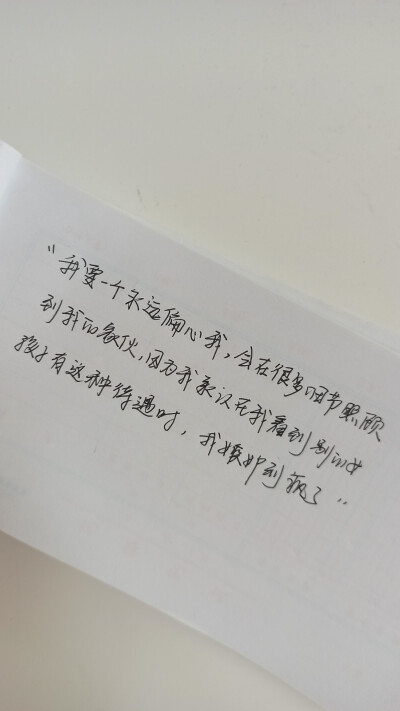 “我要一个永远偏心我,会在很多细节照顾
到我的家伙,因为我承认在我看到别的女
孩子有这种待遇时,我嫉妒到疯了”